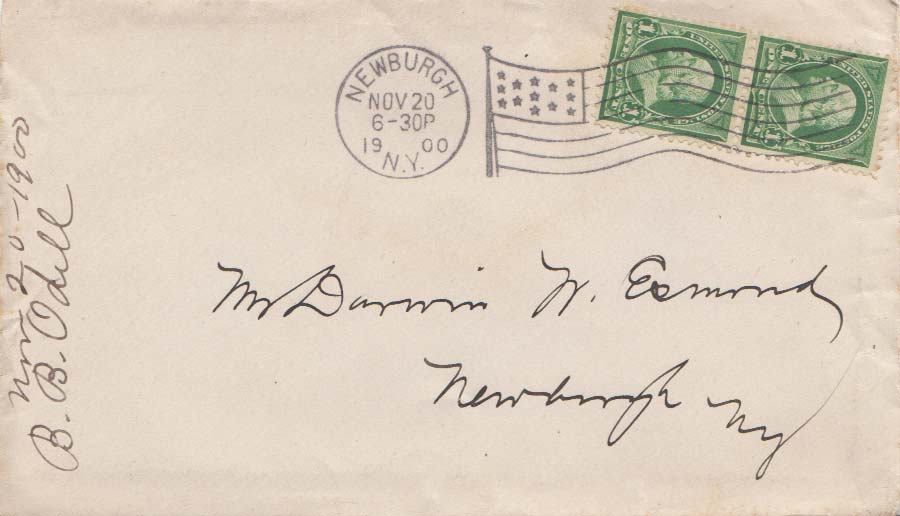 NEWBURGH
NOV 20
6-30P
19 00
N.Y.
Mr Darwin W. Esmond
Newburgh
NY
Nov 20-1900
B. B. Odell